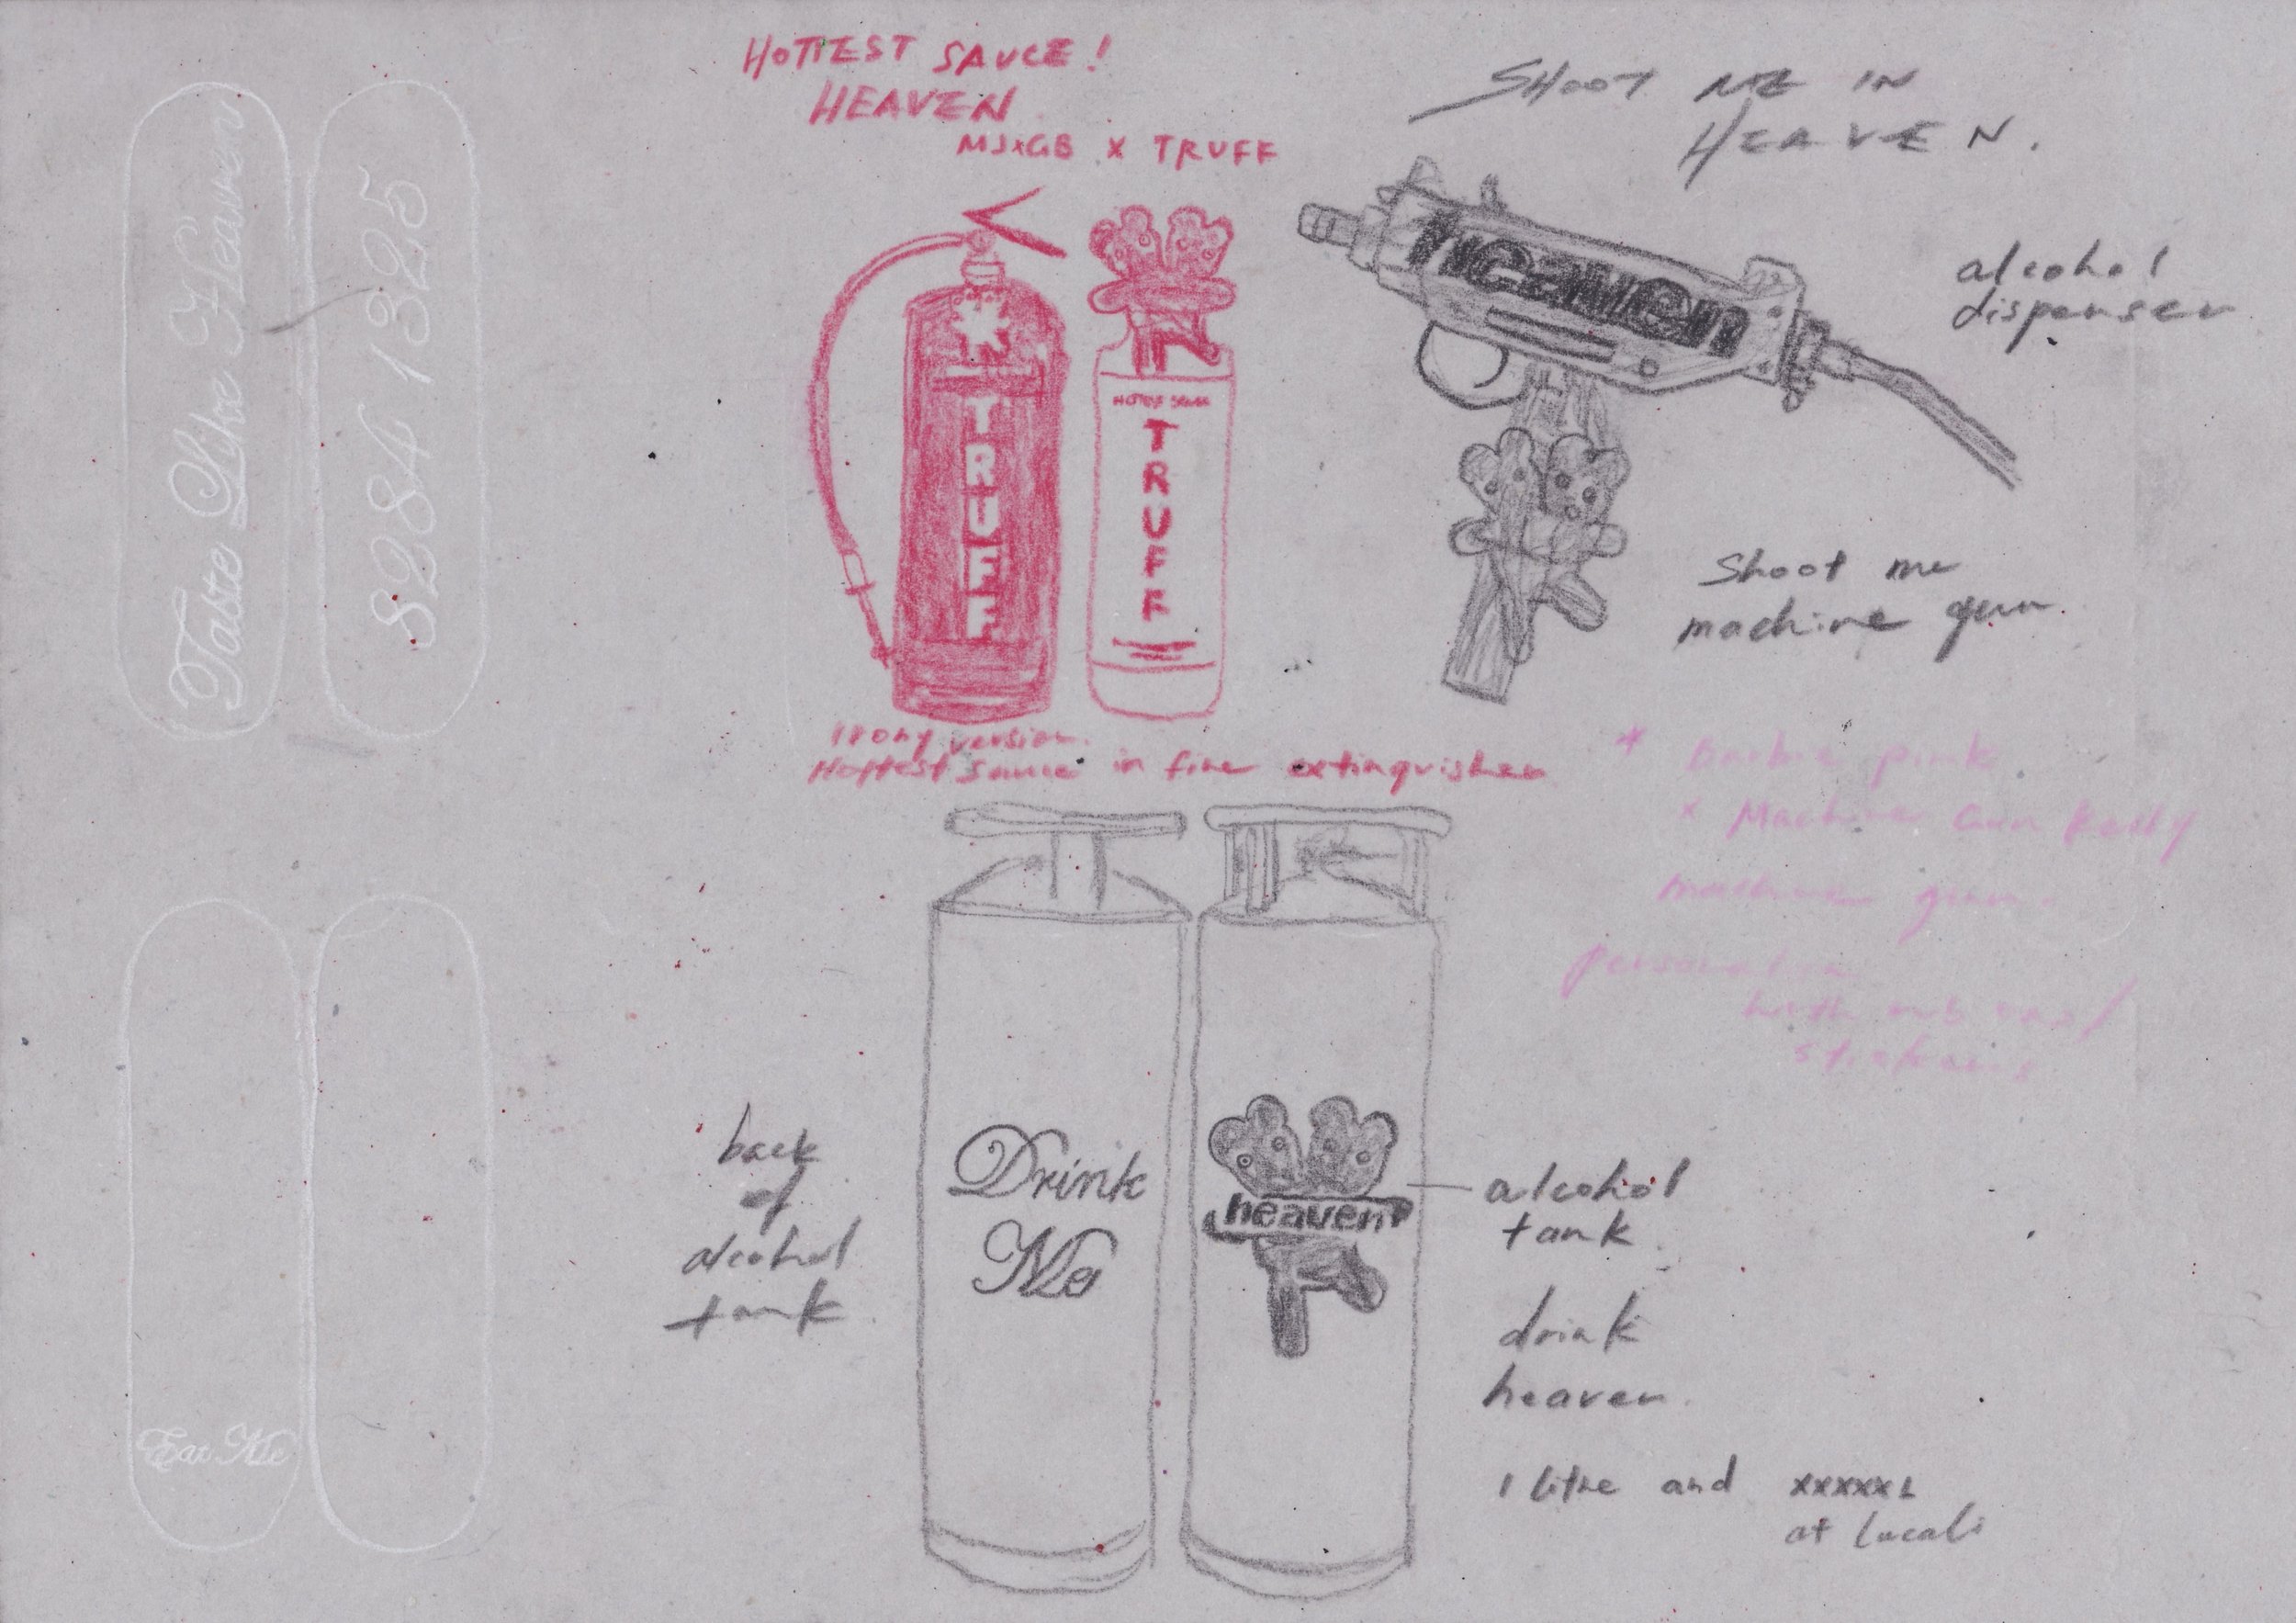 HOTTEST SAUCE!
HEAVEN
MJxGB x TRUFF
TRUFF
HOTTEST SAUCE
TRUFF
Irony version.
Hottest sauce in fire extinguisher
SHOOT ME IN
HEAVEN.
heaven
alcohol
dispenser
Shoot me
machine gun.
* Barbie pink.
x Machine Gun Kelly
machine gun.
stickers
Taste Like Heaven
8284 1325
Eat Me
back
of
alcohol
tank.
Drink
Me
heaven
alcohol
tank.
drink
heaven.
1 litre and xxxxxL
at Lucali